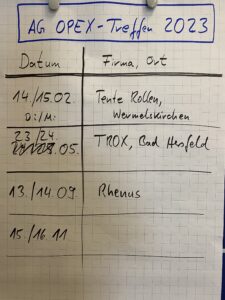 AG OPEX-Treffen 2023
Datum Firma, Ort
14./15.02. Tente Rollen,
Di/Mi Wermelskirchen
23/24
.05. TROX, Bad Hersfeld
13./14.09. Rhenus
15./16.11